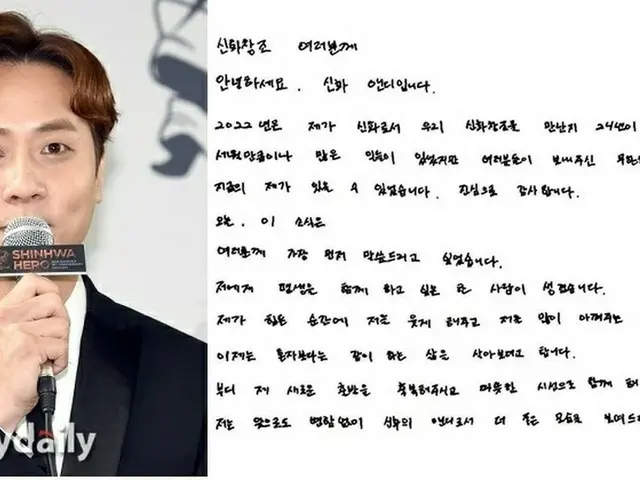 SHINHWA
HERO
ydaily
신화창조 여러분께
안녕하세요. 신화 앤디입니다.
2022년은 제가 신화로서 우리 신화창조를 만난지 24년이
세월만큼이나 많은 일들이 있었지만 여러분들이 보내주신
지금의 제가 있을 수 있었습니다. 진심으로 감사합니다.
오늘, 이 소식은
여러분께 가장 먼저 말씀드리고 싶었습니다.
저에게 평생을 함께 하고 싶은 한 사람이 생겼습니다.
제가 힘든 순간에 저를 웃게 해주고 저를 많이 아껴주는
이제는 혼자보다는 같이 하는 삶을 살아보려고 합니다.
부디 제 새로운 출발을 축복해주시고 따뜻한 시선으로 함께 해
저는 앞으로도 변함없이 신화의 앤디로서 더 좋은 모습으로 보여드